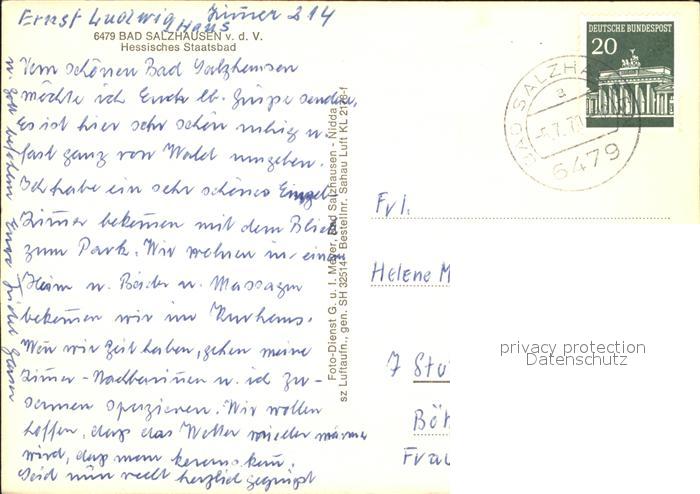 Ernst Ludwig Haus Zimmer 214
6479 BAD SALZHAUSEN v. d. V.
Hessisches Staatsbad
Vom schönen Bad Salzhausen
möchte ich Euch lb. Grüße senden.
Es ist hier sehr schön ruhig u.
fast ganz von Wald umgeben.
Ich habe ein sehr schönes Einzel
Zimer bekomen mit dem Blick
zum Park. Wir wohnen in einem
Heim u. Bäder u. Massagen
bekomen wir im Kurhaus.
Wen wir Zeit haben, gehen meine
Zimer-Nachbarinen u. ich zu-
samen spazieren. Wir wollen
hoffen, daß das Wetter wieder wärmer
wird, daß man kann.
Seid nun recht herzlich gegrüßt
u. Gott befohlen Eure
Foto-Dienst G. u. I. Meyer, Bad Salzhausen - Nidda
sz Luftaufn., gen. SH 32514 Bestellnr. Sahau Luft KL 2128-f
DEUTSCHE BUNDESPOST
20
BAD SALZHAUSEN
a
6479
Frl.
Helene M
7 Stu
Böt
Frau
privacy protection
Datenschutz